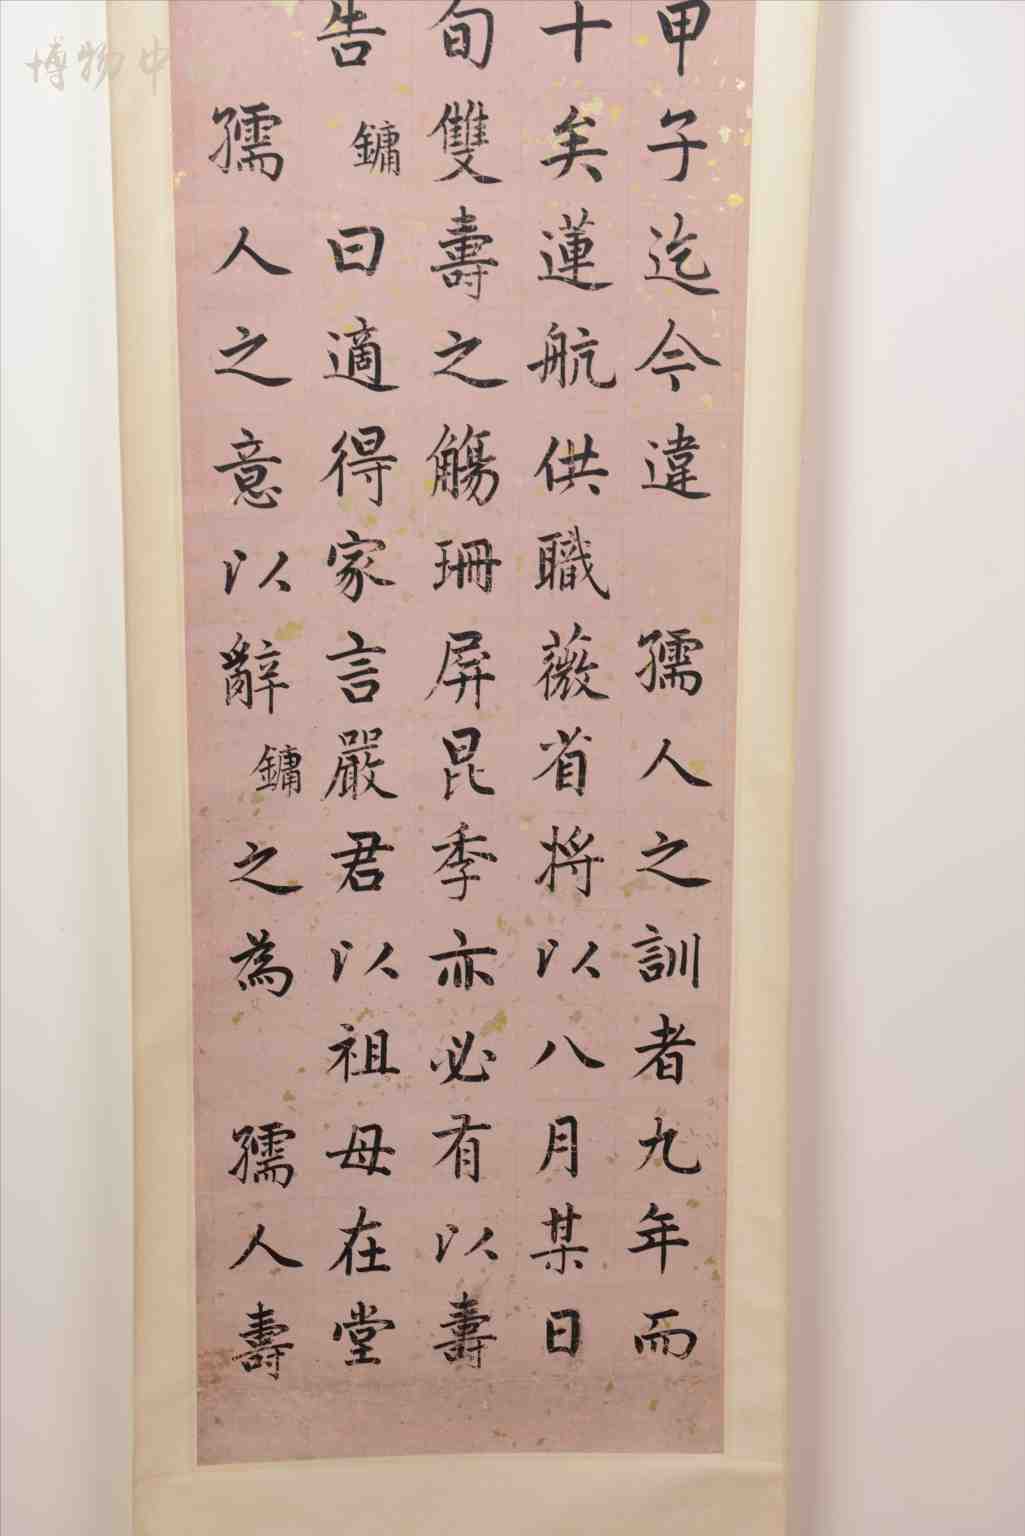 甲子迄今違 孺人之訓者九年而
十矣蓮航供職薇省將以八月某日
旬雙壽之觴珊屏昆季亦必有以壽
告鏞曰適得家言嚴君以祖母在堂
孺人之意以辭鏞之為 孺人壽
博物中